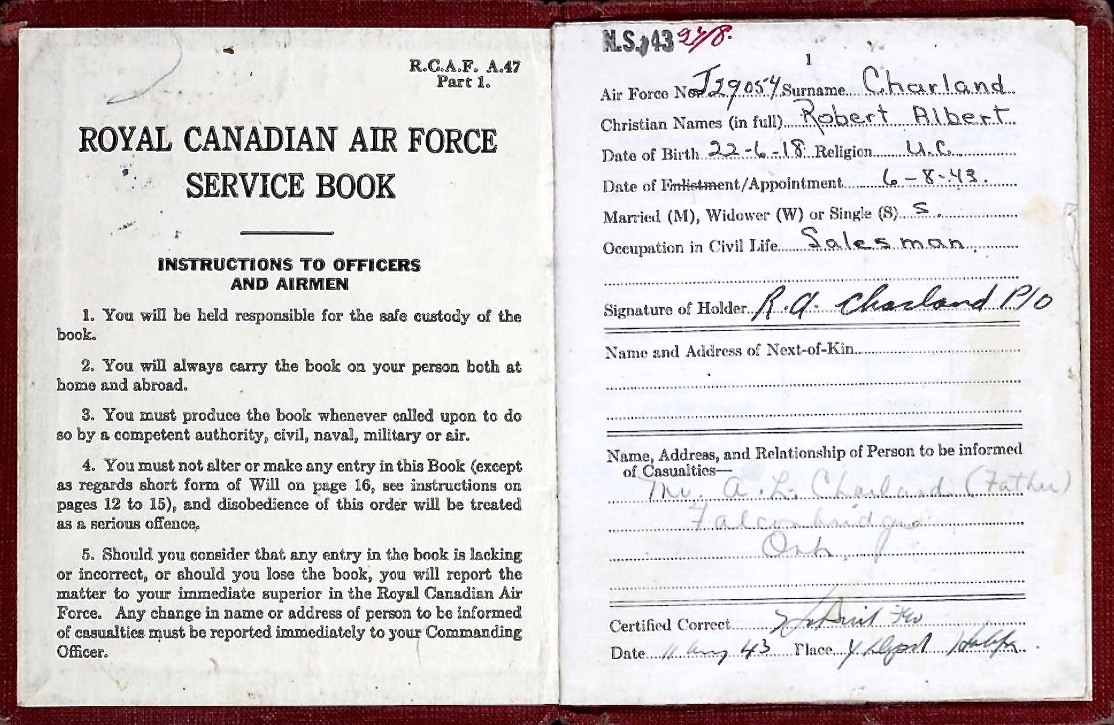 R.C.A.F. A.47
Part 1.
ROYAL CANADIAN AIR FORCE
SERVICE BOOK
INSTRUCTIONS TO OFFICERS
AND AIRMEN
1. You will be held responsible for the safe custody of the
book.
2. You will always carry the book on your person both at
home and abroad.
3. You must produce the book whenever called upon to do
so by a competent authority, civil, naval, military or air.
4. You must not alter or make any entry in this Book (except
as regards short form of Will on page 16, see instructions on
pages 12 to 15), and disobedience of this order will be treated
as a serious offence.
5. Should you consider that any entry in the book is lacking
or incorrect, or should you lose the book, you will report the
matter to your immediate superior in the Royal Canadian Air
Force. Any change in name or address of person to be informed
of casualties must be reported immediately to your Commanding
Officer.
N.S. 43
1
Air Force No. J29054 Surname Charland
Christian Names (in full) Robert Albert
Date of Birth 22-6-18 Religion U.C.
Date of Enlistment/Appointment 6-8-43.
Married (M), Widower (W) or Single (S) S.
Occupation in Civil Life Salesman
Signature of Holder R.A. Charland P/O
Name and Address of Next-of-Kin
Name, Address, and Relationship of Person to be informed
of Casualties—
Mr. A. L. Charland (Father)
Falconbridge
Ont.
Certified Correct
Date 11 Aug 43 Place Y Depot Halifax